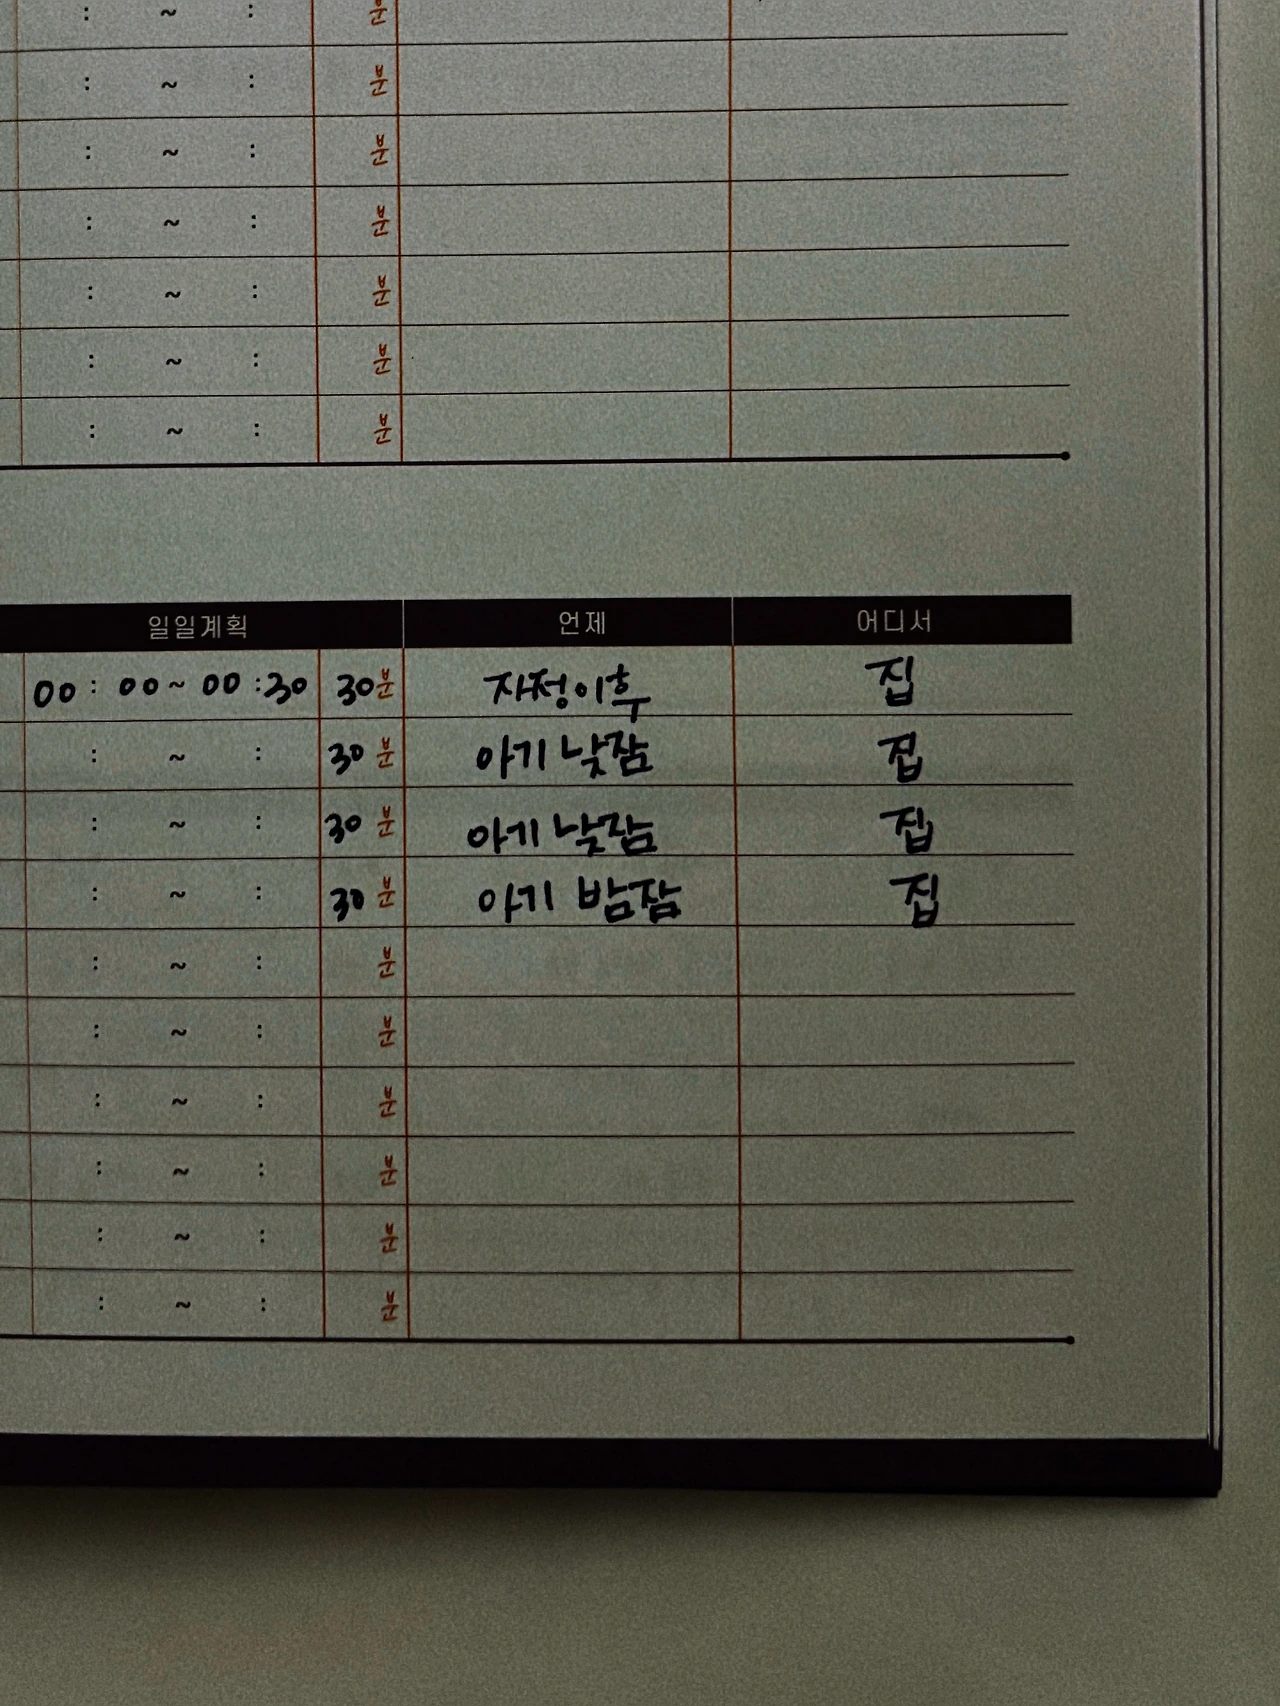 : ~ : 분
: ~ : 분
: ~ : 분
: ~ : 분
: ~ : 분
: ~ : 분
: ~ : 분
일일계획 언제 어디서
00 : 00 ~ 00 : 30 30분 자정이후 집
: ~ : 30 분 아기 낮잠 집
: ~ : 30 분 아기 낮잠 집
: ~ : 30 분 아기 밤잠 집
: ~ : 분
: ~ : 분
: ~ : 분
: ~ : 분
: ~ : 분
: ~ : 분